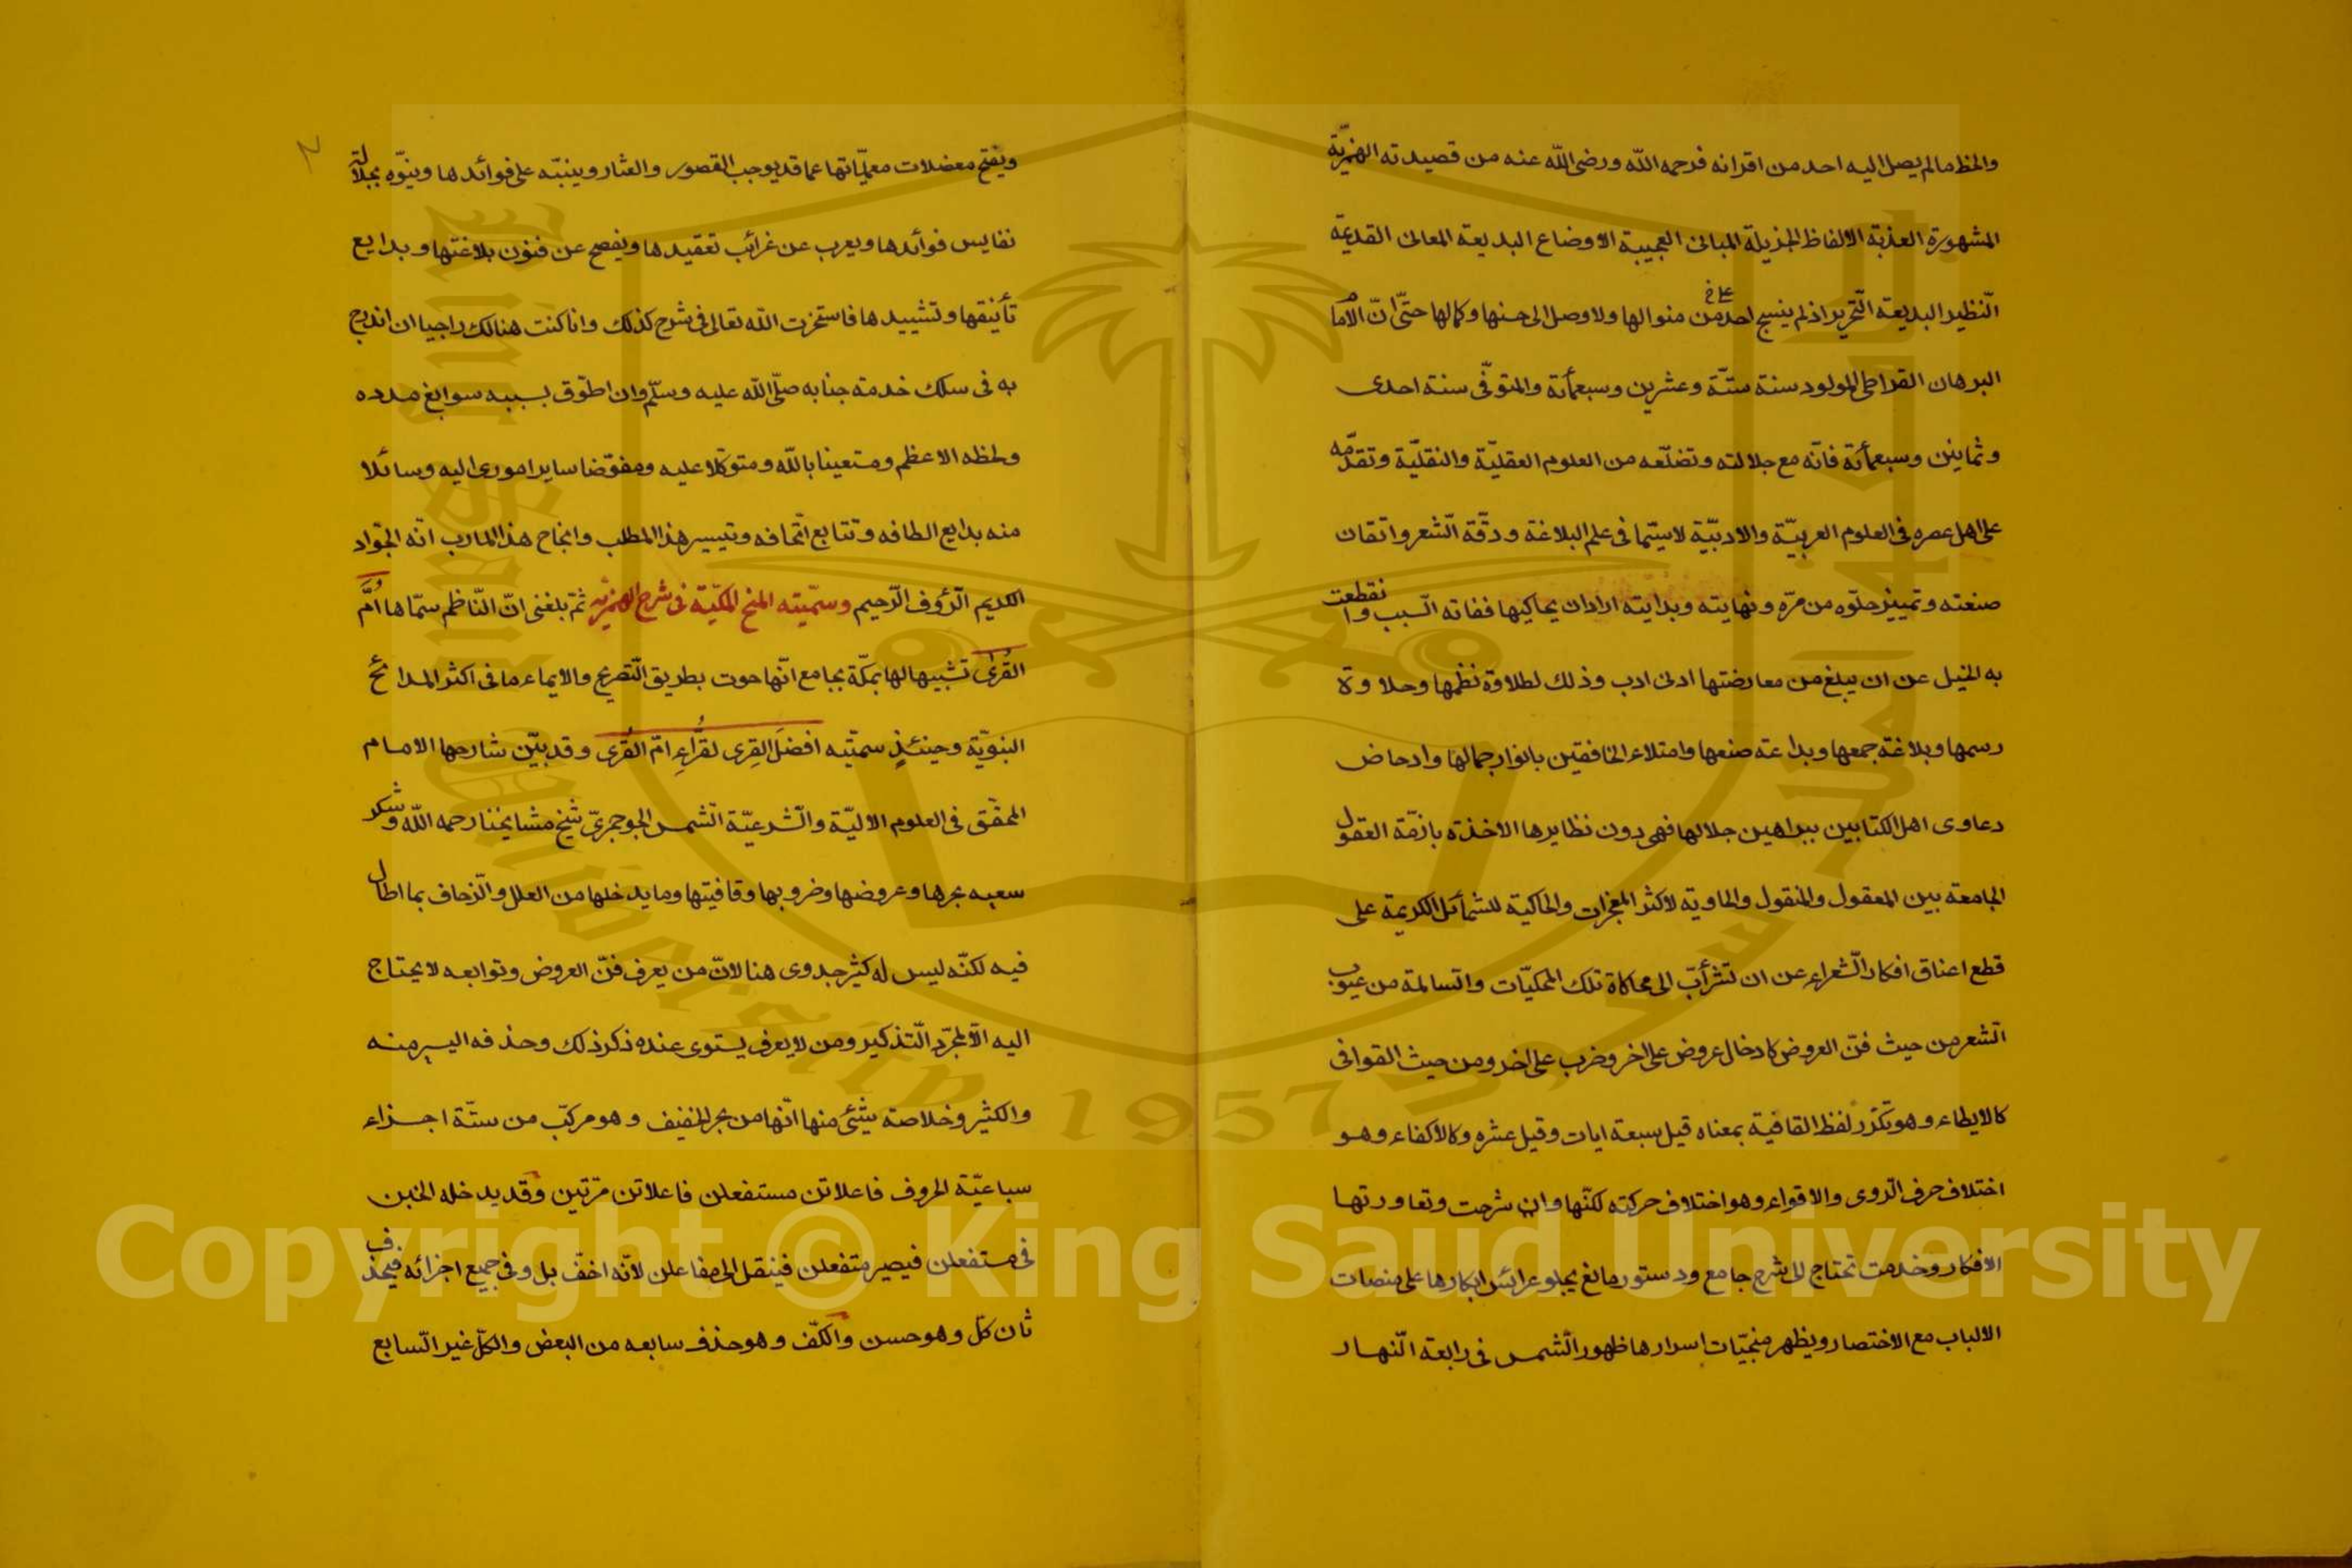 والحظ مالم يصل اليه احد من اقرانه فرحمه الله ورضى الله عنه من قصيدته الهمزيّة
المشهورة العذبة الالفاظ الجزيلة المبانى العجيبة الاوضاع البديعة المعانى القديمة
النّظير البديعة التّحرير اذ لم ينسج احد من منوالها ولا وصل الى حسنها وكمالها حتّى انّ الامام
البرهان القيراطى المولود سنة ستّة وعشرين وسبعمأئة والمتوفّى سنة احدى
وثمانين وسبعمأئة فانّه مع جلالته وتضلّعه من العلوم العقليّة والنقليّة وتقدّمه
على اهل عصره فى العلوم العربيّة والادبيّة لاسيّما فى علم البلاغة ودقّة الشّعر واتقان
صنعته وتمييز حلوّه من مرّه ونهايته وبدايته اراد ان يحاكيها ففاته السّبب وانقطعت
به الحيل عن ان يبلغ من معارضتها ادنى ادب وذلك لطلاوة نظمها وحلاوة
رسمها وبلاغة جمعها وبداعته صنعها وامتلاء الخافقين بانوار جمالها وادحاض
دعاوى اهل الكتابين ببراهين جلالها فهى دون نظايرها الاخذة بازمّة العقول
الجامعة بين المعقول والمنقول والحاوية لاكثر المعجزات والحاكية للشمأئل الكريمة على
قطع اعناق افكار الشّعراء عن ان تشرأبّ الى محاكاة تلك المحكيّات والسّالمة من عيوب
الشّعر من حيث فنّ العروض كادخال عروض على اخر وضرب على اخر ومن حيث القوافى
كالايطاء وهو تكرّر لفظ القافية بمعناه قيل سبعة ابات وقيل عشره وكالاكفاء وهو
اختلاف حرف الرّوى والاقواء وهو اختلاف حركته لكنّها وان شرحت وتعاورتها
الافكار وخدمت تحتاج الى شرح جامع ودستور مانع يجلو عرائس ابكارها على منصات
الالباب مع الاختصار ويظهر مخبّيات اسرارها ظهور الشّمس فى رابعة النّهار
ويفتح معضلات معمّياتها عما قد يوجب القصور والعثار وينبّه على فوائدها وينوّه بجلالة
نفايس فوائدها ويعرب عن غرائب تعقيدها ويفصح عن فنون بلاغتها وبدايع
تأنيقها وتشييدها فاستخرت الله تعالى فى شرح كذلك وانا كنت هنالك راجيا ان اندرج
به فى سلك خدمة جنابه صلّى الله عليه وسلّم وان اطوّق بسببه سوابغ مدده
ولحظه الاعظم ومستعينا بالله ومتوكّلا عليه ومفوّضا ساير امورى اليه وسائلا
منه بدايع الطافه وتتابع اتحافه وتيسير هذا المطلب وانجاح هذا المارب انّه الجوّاد
الكريم الرّؤف الرّحيم وسمّيته المنح المكيّة فى شرح الهمزيّة ثمّ بلغنى انّ النّاظم سمّاها اُمَّ
القُرى تشبيها لها بمكّة بجامع انّها حوت بطريق التّصريح والايماء ما فى اكثر المدائح
النبويّة وحينئذٍ سمّيته افضَلَ القِرى لقُرّاءِ امّ القُرى وقد بيّن شارحها الامام
المحقّق فى العلوم الاليّة والشّرعيّة الشّمس الجوجرىّ شيخ مشايخنا رحمه الله وشكر
سعيه بحرها وعروضها وضروبها وقافيتها وما يدخلها من العلل والزّحاف بما اطال
فيه لكنّه ليس له كثير جدوى هنا لانّ من يعرف فنّ العروض وتوابعه لا يحتاج
اليه الّا لمجرّد التّذكير ومن لا يعرف يستوى عنده ذكر ذلك وحذفه اليسير منه
والكثير وخلاصة شئى منها انّها من بحر الخفيف وهو مركّب من ستّة اجزاء
سباعيّة الحروف فاعلاتن مستفعلن فاعلاتن مرّتين وقد يدخله الخبن
فى مستفعلن فيصير متفعلن فينقل الى مفاعلن لانّه اخفّ بل وفى جميع اجزائه فيحذف
ثان كلّ وهو حسن والكفّ وهو حذف سابعه من البعض والكلّ غير السّابع
Copyright © King Saud University
King Saud University
1957